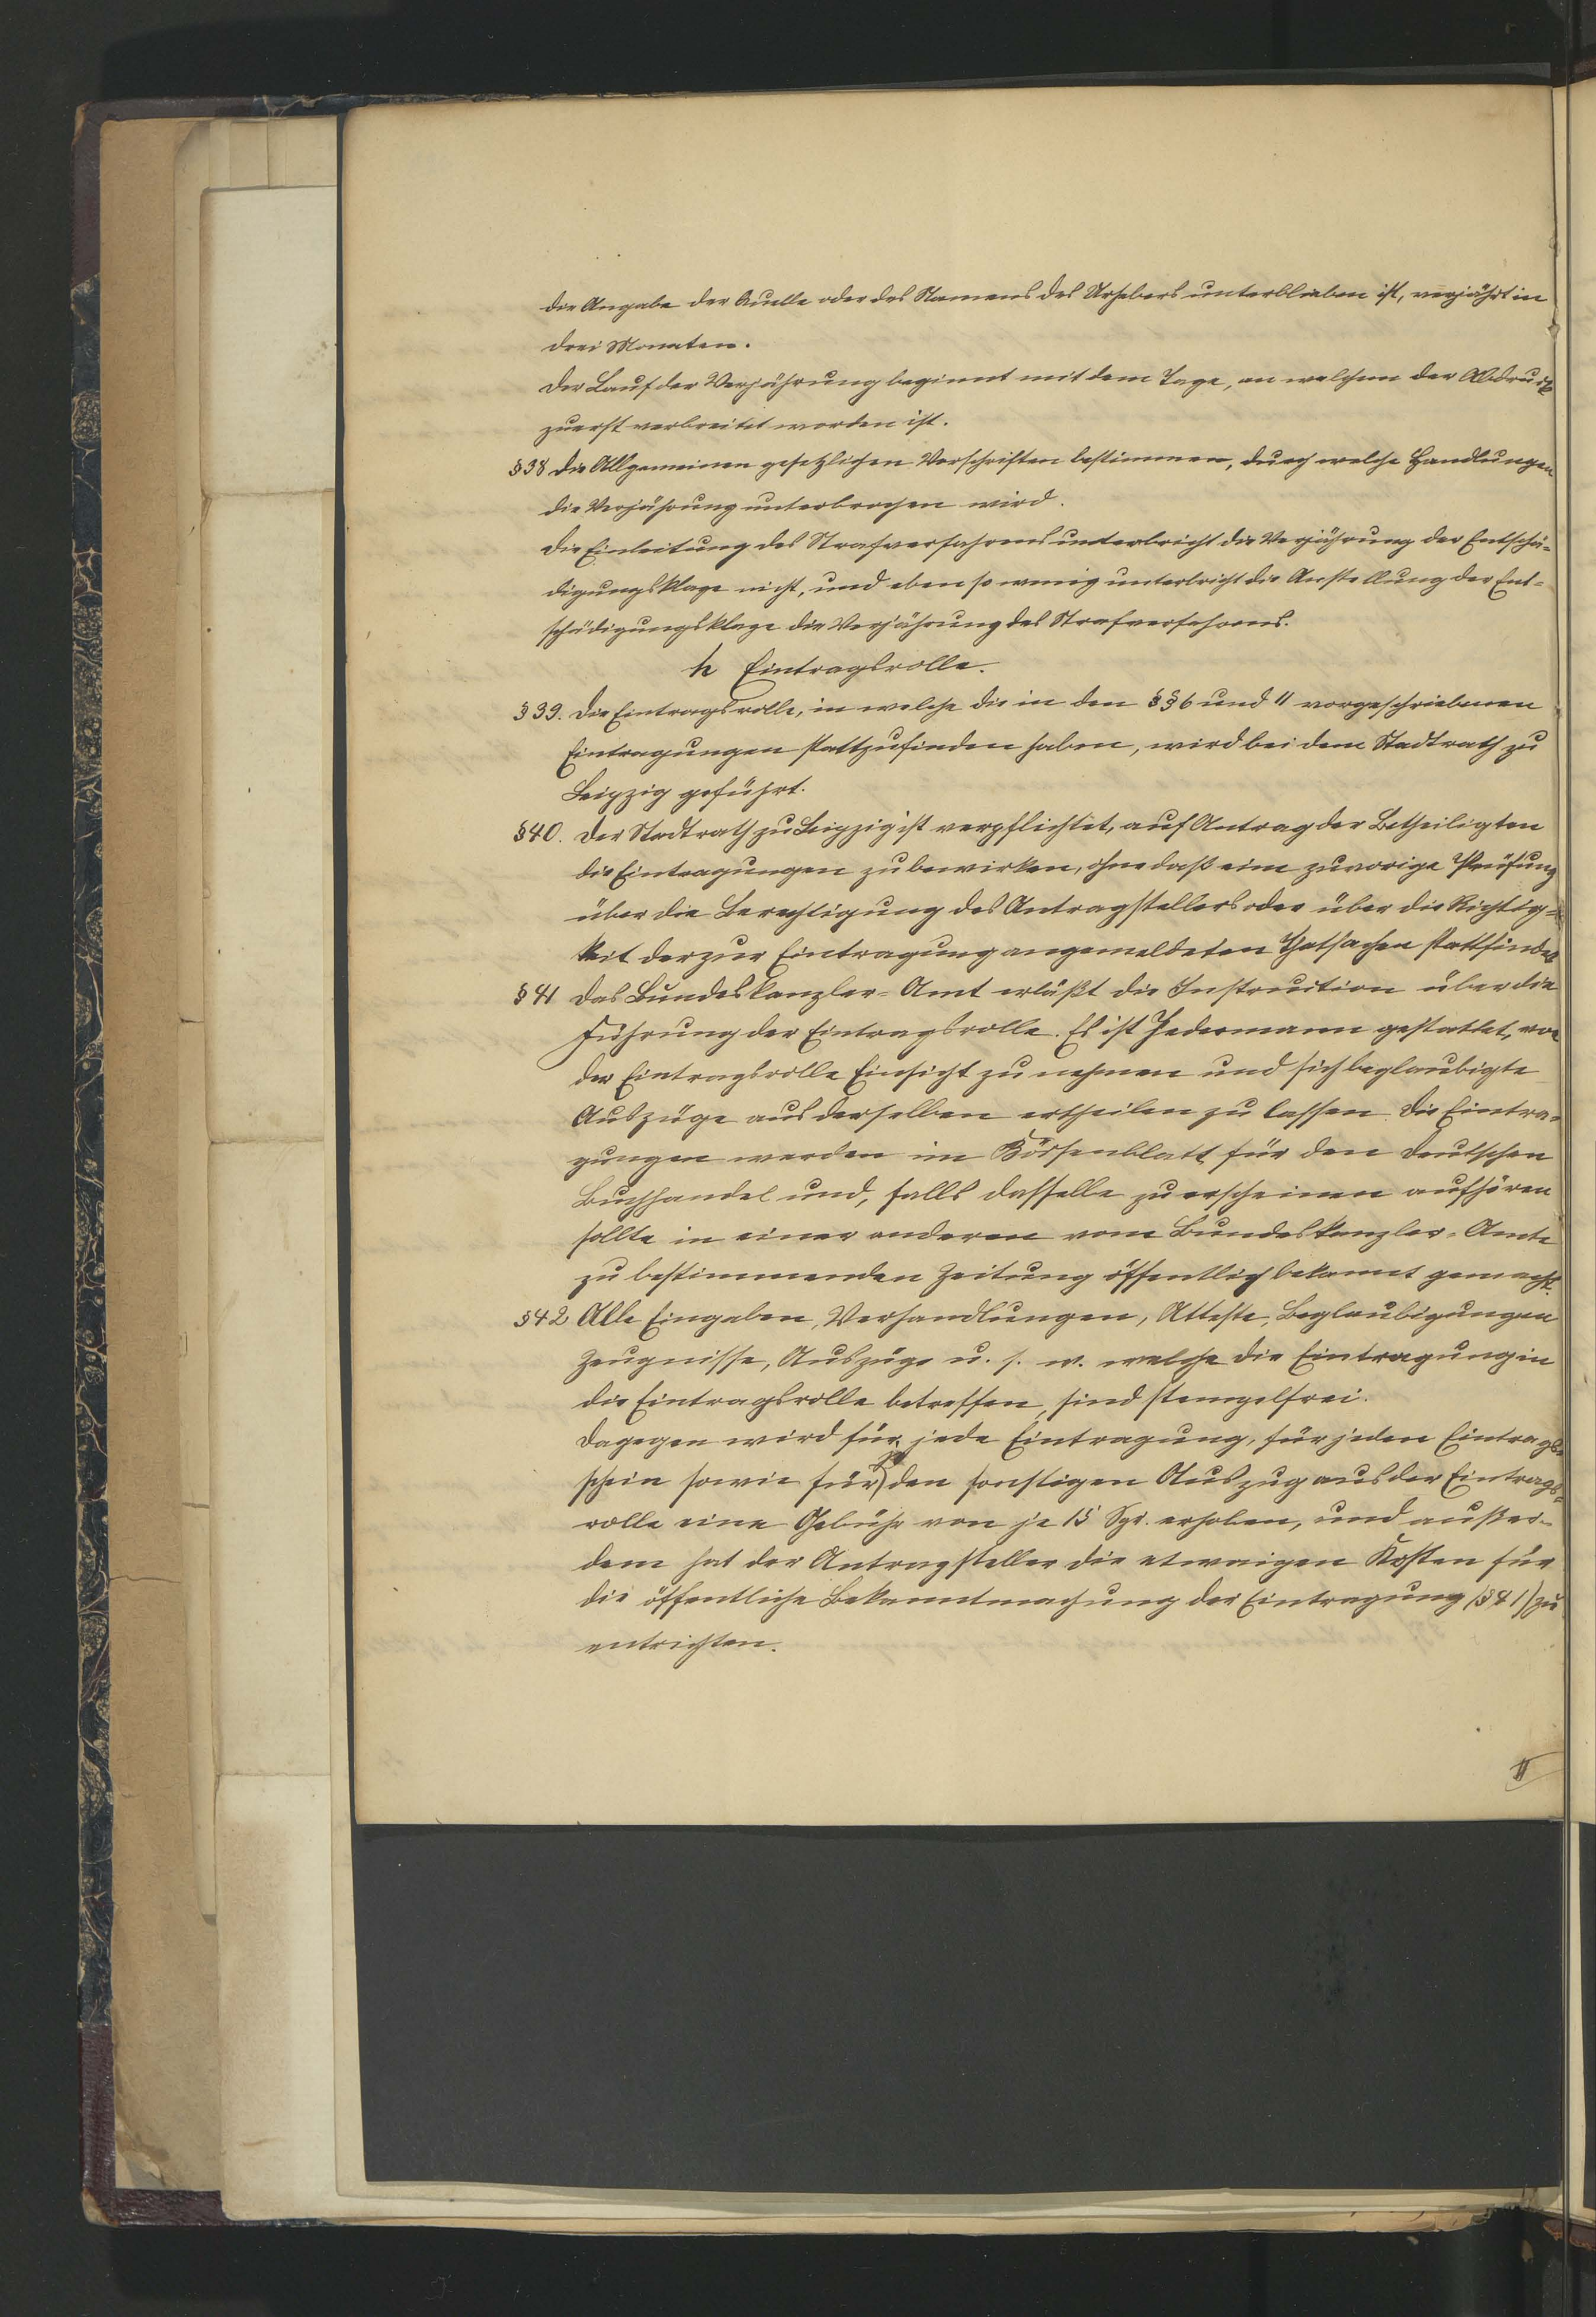 die Angabe der Quelle oder des Namens des Urhebers unterblieben ist, verjährt in
drei Monaten.
Der Lauf der Verjährung beginnt mit dem Tage, an welchem der Abdruck
zuerst verbreitet worden ist.
§ 38 Die Allgemeinen gesetzlichen Vorschriften bestimmen, durch welche Handlungen
die Verjährung unterbrochen wird.
Die Einleitung des Strafverfahrens unterbricht die Verjährung der Entschä-
digungsklage nicht, und eben so wenig unterbricht die Anstellung der Ent-
schädigungsklage die Verjährung des Strafverfahrens.
h Eintragsrolle.
§ 39. Die Eintragsrolle, in welche die in den §§ 6 und 11 vorgeschriebenen
Eintragungen stattzufinden haben, wird bei dem Stadtrath zu
Leipzig geführt.
§ 40. Der Stadtrath zu Leipzig ist verpflichtet, auf Antrag der Betheiligten
die Eintragungen zu bewirken, ohne daß eine zuvorige Prüfung
über die Berechtigung des Antragstellers oder über die Richtig-
keit der zur Eintragung angemeldeten Thatsachen stattfindet
§ 41 Das Bundeskanzler-Amt erläßt die Instruction über die
Führung der Eintragsrolle. Es ist Jedermann gestattet, von
der Eintragsrolle Einsicht zu nehmen und sich beglaubigte
Auszüge aus derselben ertheilen zu lassen. Die Eintra-
gungen werden im Börsenblatt für den deutschen
Buchhandel und, falls dasselbe zu erscheinen aufhören
sollte in einer anderen vom Bundeskanzler-Amte
zu bestimmenden Zeitung öffentlich bekannt gemacht.
§ 42 Alle Eingaben, Verhandlungen, Atteste, Beglaubigungen
Zeugnisse, Auszüge u. s. w. welche die Eintragung in
die Eintragsrolle betreffen, sind stempelfrei.
Dagegen wird für jede Eintragung, für jeden Eintrags-
schein sowie für je den sonstigen Auszug aus der Eintrags-
rolle eine Gebühr von je 15 Sgr. erhoben, und außer-
dem hat der Antragsteller die etwaigen Kosten für
die öffentliche Bekanntmachung der Eintragung (§ 41) zu
entrichten.